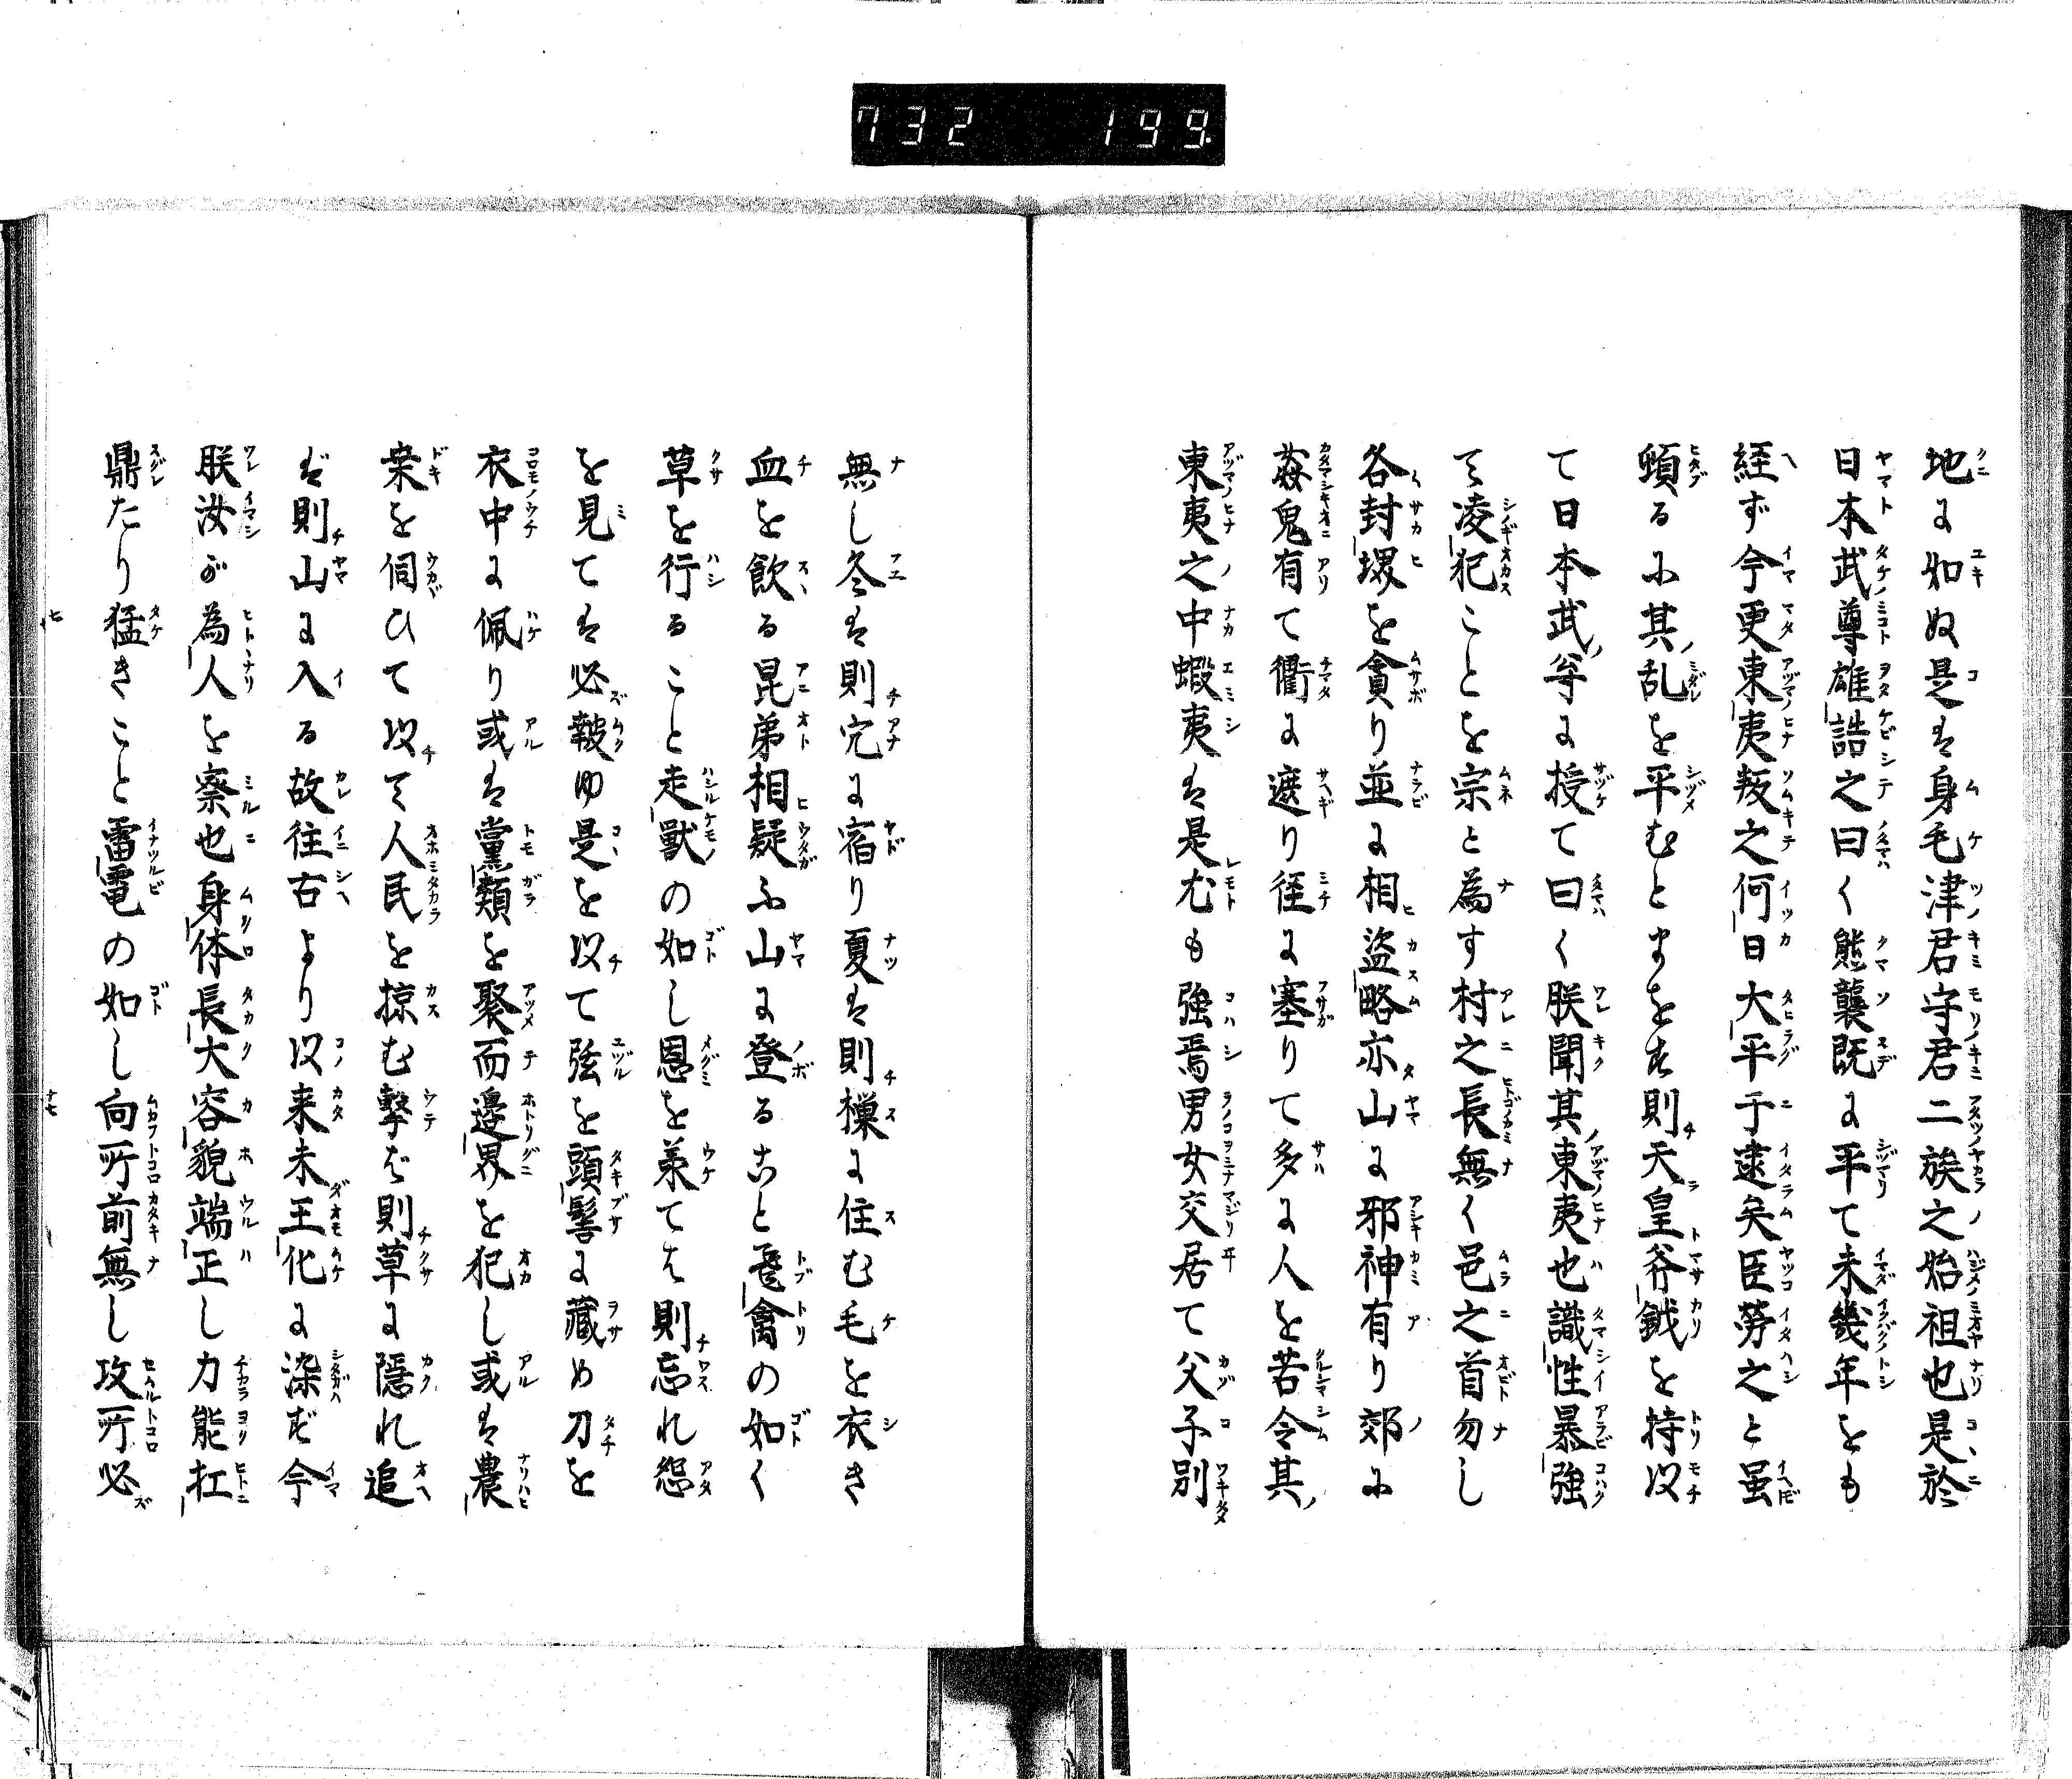 732 199.
地に如ぬ是は身毛津君守君二族之始祖也是於
日本武尊雄誥之曰く熊襲既に平て未幾年をも
経ず今更東夷叛之何日大平于逮矣臣労之と雖
頓るに其乱を平むとまをす則天皇斧鉞を持以
て日本武尊に授て曰く朕聞其東夷也識性暴強
て凌犯ことを宗と為す村之長無く邑之首勿し
各封堺を貪り並に相盗略亦山に邪神有り郊に
姦鬼有て衢に遮り径に塞りて多に人を苦令其
東夷之中蝦夷は是尤も強焉男女交居て父子別
無し冬は則穴に宿り夏は則樔に住む毛を衣き
血を飲る昆弟相疑ふ山に登ること飛禽の如く
草を行ること走獣の如し恩を承ては則忘れ怨
を見ては必報ゆ是を以て弦を頭髻に蔵め刀を
衣中に佩り或は党類を聚而辺界を犯し或は農
桒を伺ひて以て人民を掠む撃ば則草に隠れ追
ば則山に入る故往古より以来未王化に染ず今
朕汝が為人を察也身体長大容貌端正し力能扛
鼎たり猛きこと雷電の如し向所前無し攻所必
七
十七